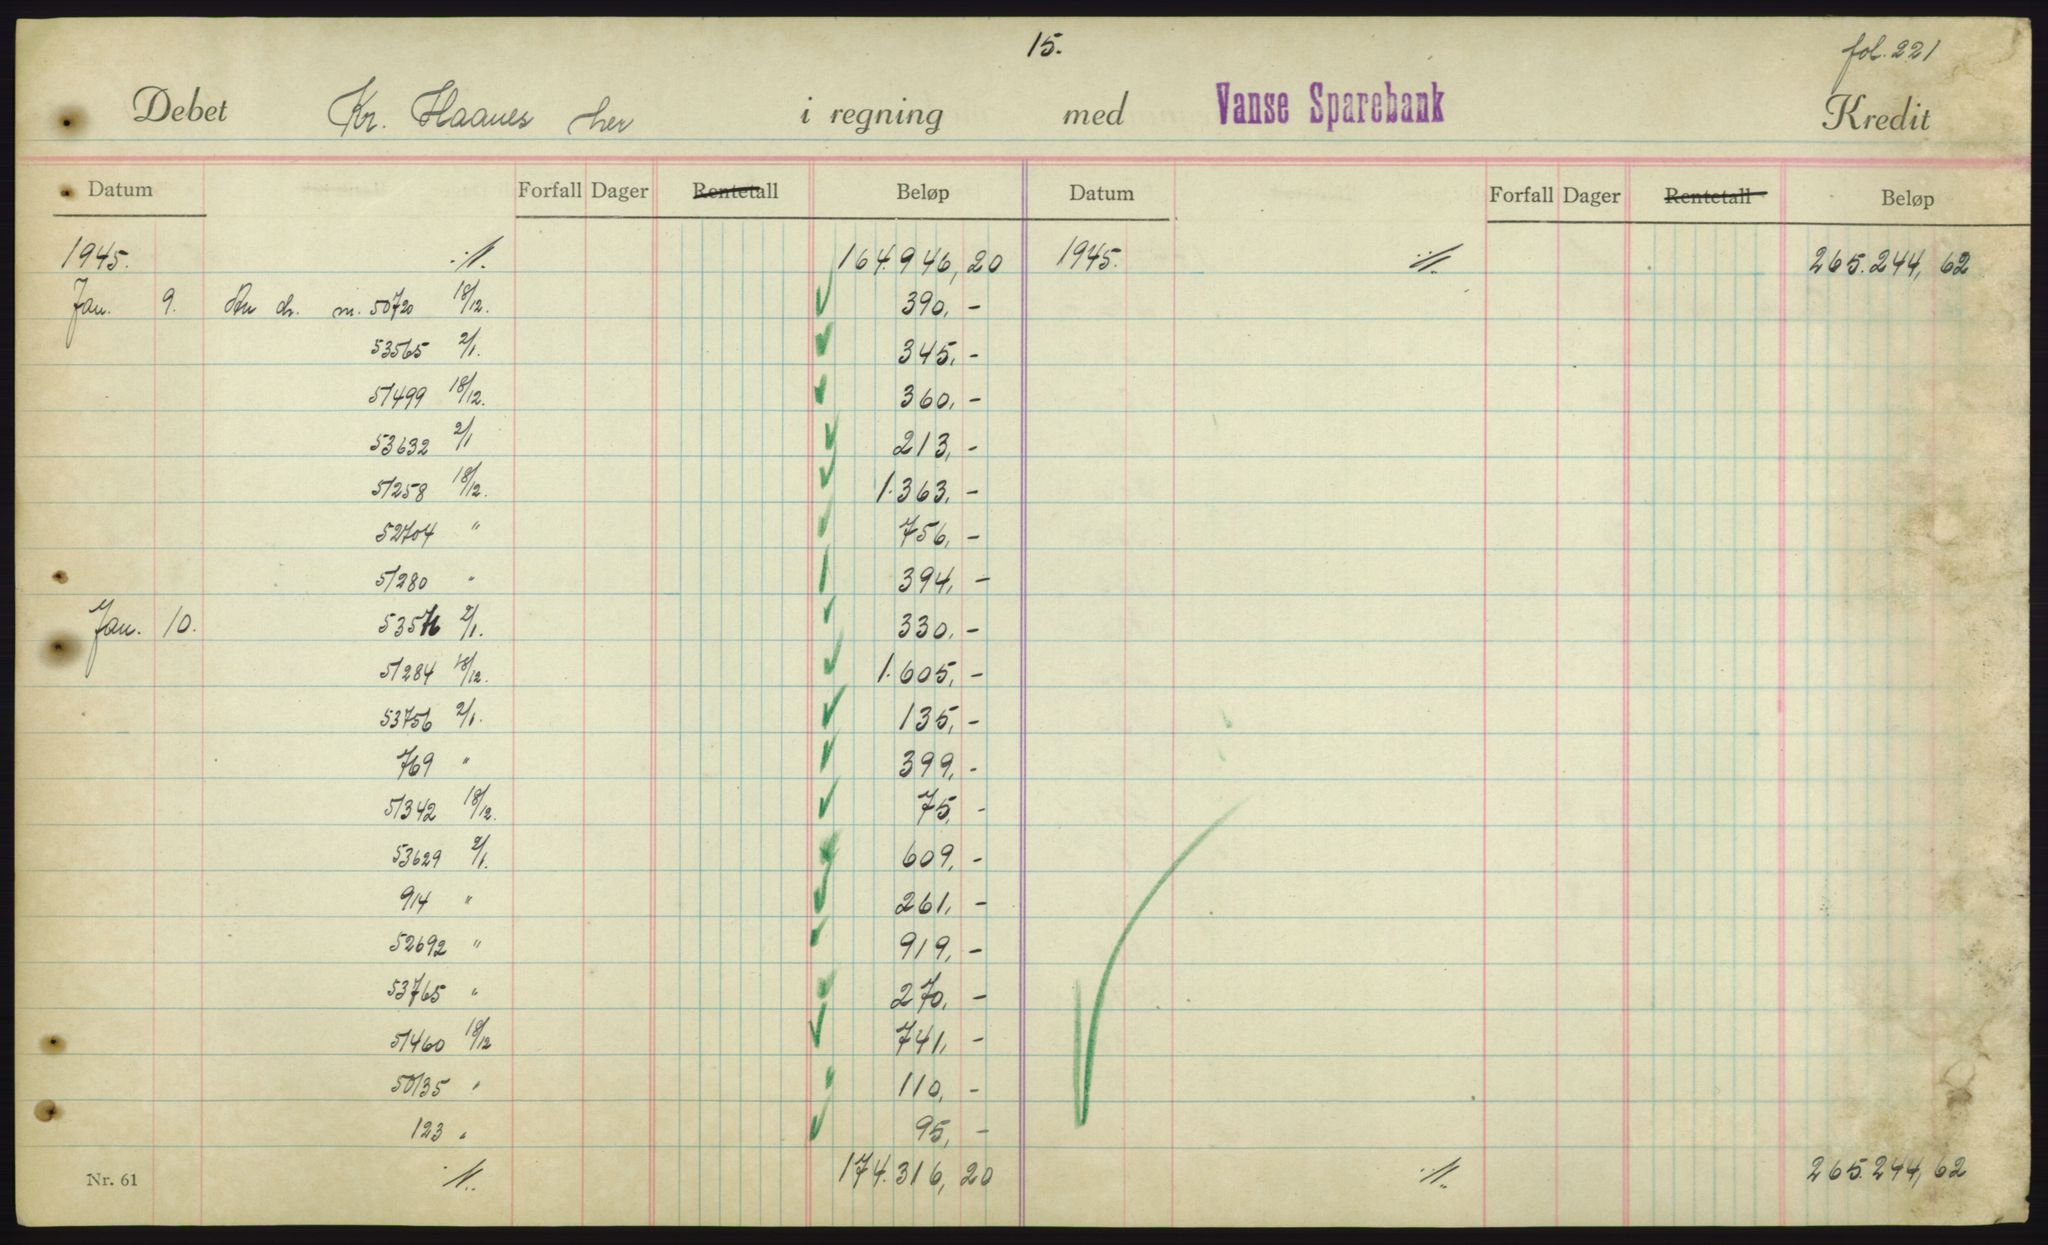 15.
fol. 221
Debet Kr. Haanes her i regning med Vanse Sparebank Kredit
Datum Forfall Dager Rentetall Beløp Datum Forfall Dager Rentetall Beløp
1945. ·//. 164.946,20 1945. ·//. 265.244,62
Jan. 9. An dr. m. 50720 18/12. 390,-
53565 2/1. 345,-
51499 18/12. 360,-
53632 2/1 213,-
51258 18/12. 1.363,-
52704 " 756,-
51280 " 394,-
Jan. 10. 53576 2/1. 330,-
51284 18/12. 1.605,-
53756 2/1. 135,-
769 " 399,-
51342 18/12. 75,-
53629 2/1. 609,-
914 " 261,-
52692 " 919,-
53765 " 270,-
51460 18/12 741,-
50135 " 110,-
123 " 95,-
Nr. 61 ·//. 174.316,20 ·//. 265.244,62